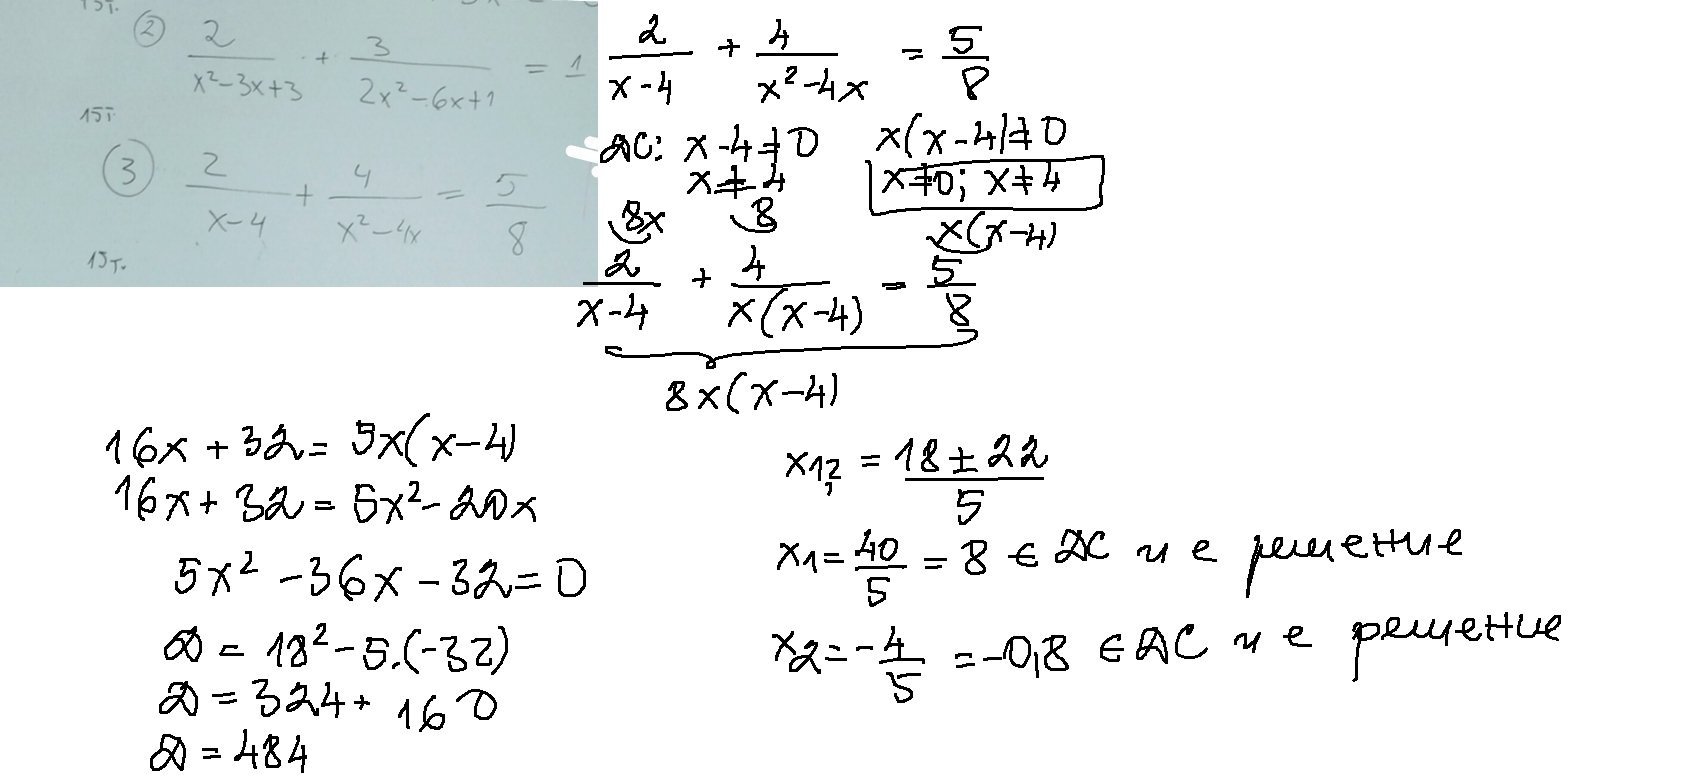 15т.
② 2/(x²-3x+3) + 3/(2x²-6x+1) = 1
15т
③ 2/(x-4) + 4/(x²-4x) = 5/8
15т.
2/(x-4) + 4/(x²-4x) = 5/8
ДС: x-4≠0 x(x-4)≠0
x≠4 x≠0; x≠4
8x 8 x(x-4)
2/(x-4) + 4/(x(x-4)) = 5/8
8x(x-4)
16x+32=5x(x-4)
16x+32=5x²-20x
5x²-36x-32=0
D=18²-5.(-32)
D=324+160
D=484
x1,2=(18±22)/5
x1=40/5=8 ∈ ДС и е решение
x2=-4/5=-0,8 ∈ ДС и е решение